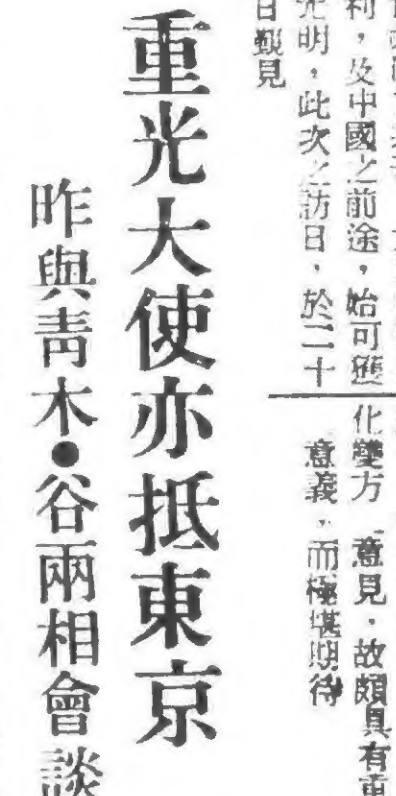 利，及中國之前途，始可獲
光明，此次之訪日，於二十
日覲見
化雙方　意見，故頗具有重
意義，而極堪期待
重光大使亦抵東京
昨與青木●谷兩相會談